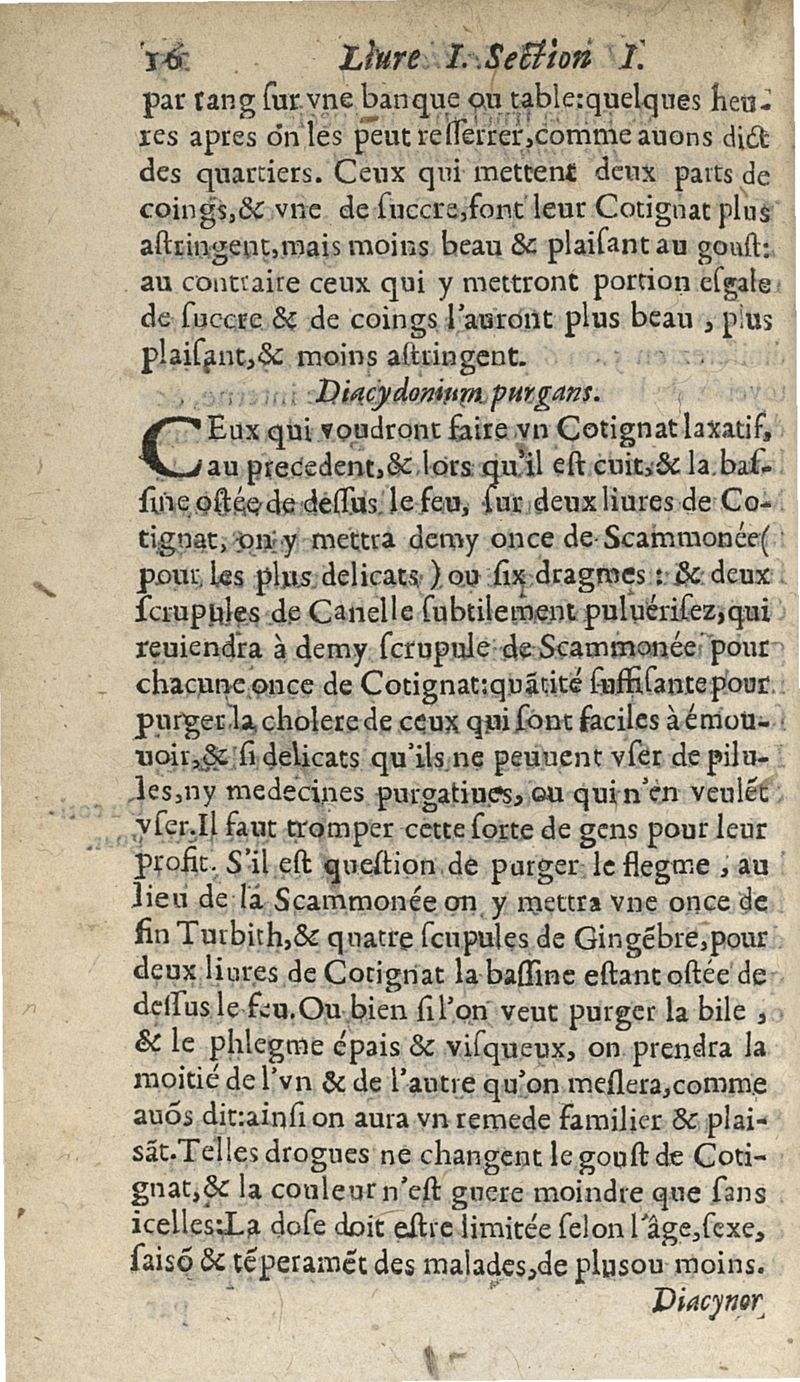 16 Liure I. Section I.
par rang ſur vne banque ou table:quelques heu-
res apres on les peut reſſerrer,comme auons dict
des quartiers. Ceux qui mettent deux parts de
coings,& vne de ſuccre,font leur Cotignat plus
aſtringent,mais moins beau & plaiſant au gouſt:
au contraire ceux qui y mettront portion eſgale
de ſuccre & de coings l'auront plus beau , plus
plaiſant,& moins aſtringent.
Diacydonium purgans.
CEux qui voudront faire vn Cotignat laxatif,
au precedent,& lors qu'il eſt cuit,& la baſ-
ſine oſtée de deſſus le feu, ſur deux liures de Co-
tignat, on y mettra demy once de Scammonée(
pour les plus delicats ) ou ſix dragmes : & deux
ſcrupules de Canelle ſubtilement puluériſez,qui
reuiendra à demy ſcrupule de Scammonée pour
chacune once de Cotignat:quãtité ſuffiſante pour
purger la cholere de ceux qui ſont faciles à émou-
uoir,& ſi delicats qu'ils ne peuuent vſer de pilu-
les,ny medecines purgatiues, ou qui n'en veulẽt
vſer.Il faut tromper cette ſorte de gens pour leur
profit. S'il eſt queſtion de purger le flegme , au
lieu de la Scammonée on y mettra vne once de
fin Turbith,& quatre ſcupules de Gingẽbre,pour
deux liures de Cotignat la baſſine eſtant oſtée de
deſſus le feu.Ou bien ſi l'on veut purger la bile ,
& le phlegme épais & viſqueux, on prendra la
moitié de l'vn & de l'autre qu'on meſlera,comme
auõs dit:ainſi on aura vn remede familier & plai-
sãt.Telles drogues ne changent le gouſt de Coti-
gnat,& la couleur n'eſt guere moindre que ſans
icelles:La doſe doit eſtre limitée ſelon l'âge,ſexe,
ſaisõ & tẽperamẽt des malades,de plusou moins.
Diacynor